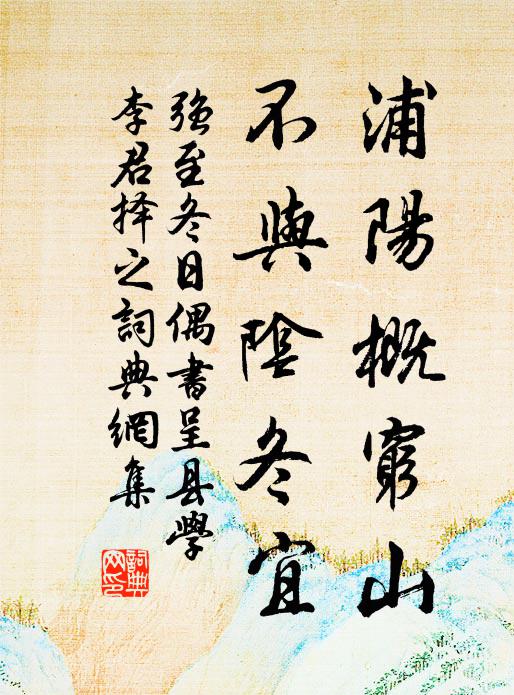 浦陽概窮山
不與陰冬宜
強至冬日偶書呈县學
李君择之詞典網集
詞典
网印